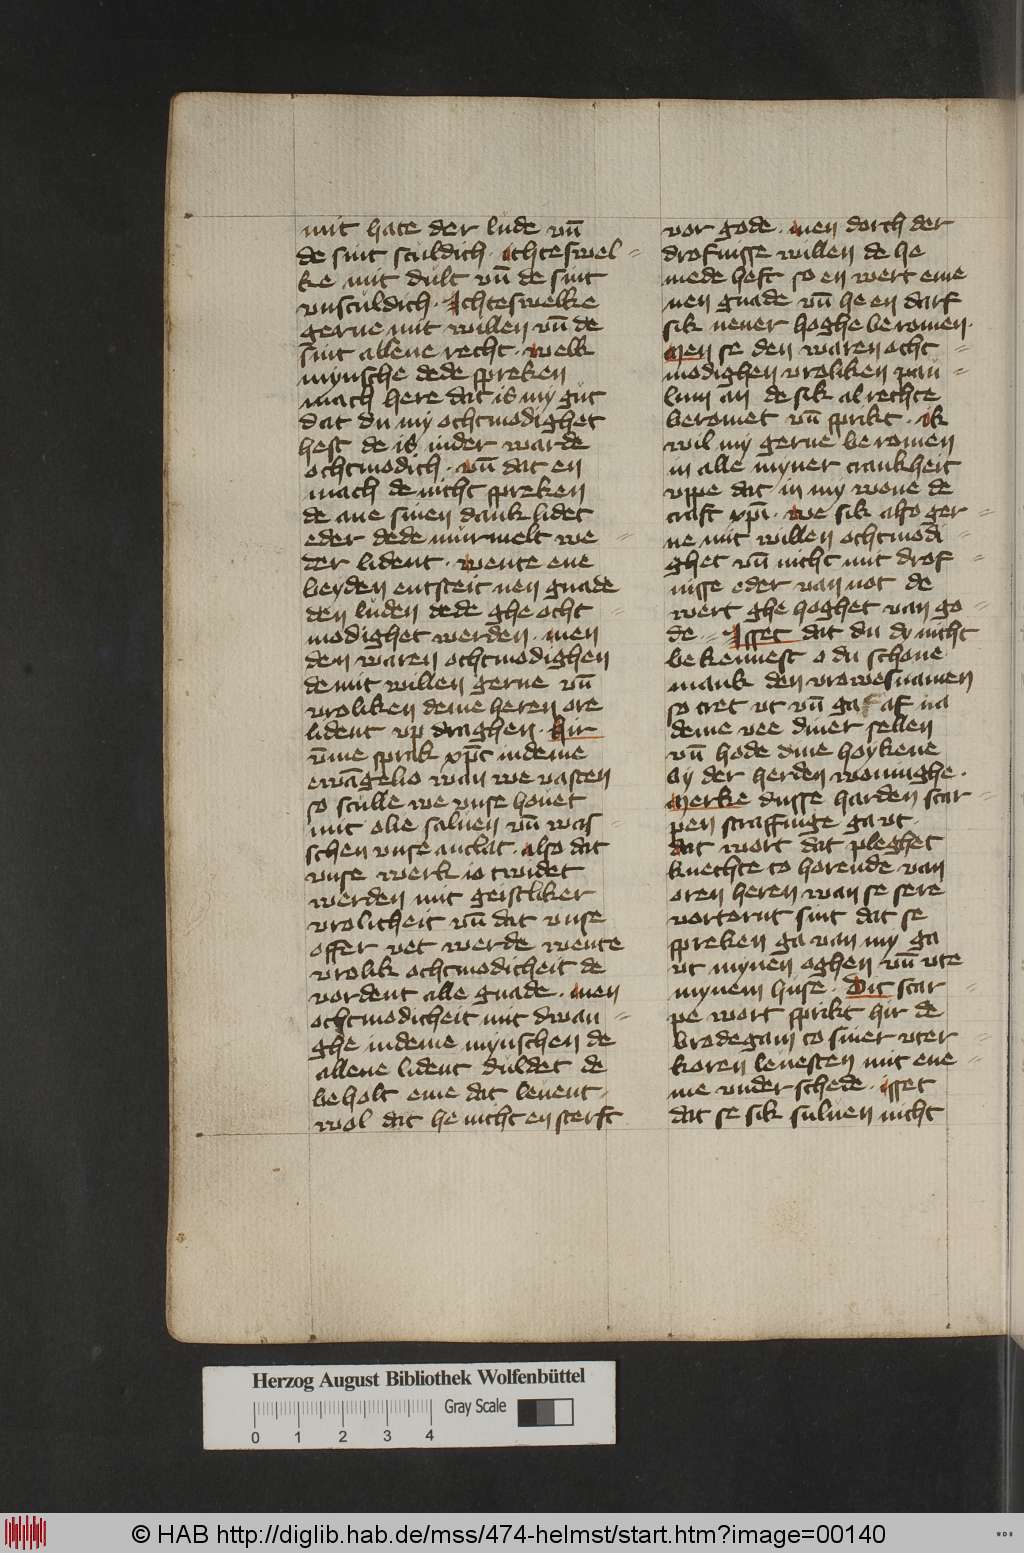 mit hate der lude vn̄
de sint sculdich. Ichteswel⸗
ke mit dult vn̄ de sint
vnsculdich. Ichteswelke
gerne mit willen vn̄ de
sint allene recht. welk
mynsche dede spreken
mach here dat is my gut
dat du my othmodighet
hest de is in der warde
othmodich. vn̄ dat en
mach de nicht spreken
de ane sinen dank lidet
eder dede murmelt we⸗
der lident. wente ene
beyden entsteit nen gnade
den luden dede ghe otht⸗
modighet werden. men
den waren othtmodighen
de mit willen gerne vn̄
vroliken deme heren ore
lident vp draghen. hir
vm̄e sprak xp̄c indeme
ewāgelio wan we vasten
so sculle we vnse houet
mit olie saluen vn̄ was⸗
schen vnse antlat. also dat
vnse werk io twidet
werden mit geistliker
vrolicheit vn̄ dat vnse
offer vet werde wente
vrolik othtmodicheit de
vordent alle gnade. men
othtmodicheit mit dwan⸗
ghe indeme mynschen de
allene lident duldet de
beholt eme dat leuent.
wol dat he nicht en sterft
vor gode. men dorch der
drofnisse willen de he
mede heft so en wert eme
nen gnade vn̄ he en darf
sik nener hoghe beromen.
Men se den waren otht⸗
modighen vroliken pau⸗
lum an de sik al rechte
beromet vn̄ sprikt. ik
wil my gerne beromen
in alle myner crankheit
vppe dat in my wone de
craft xp̄i. we sik also ger⸗
ne mit willen othtmodi⸗
ghet vn̄ nicht mit drof⸗
nisse eder van not de
wert ghe hoghet van go⸗
de. Isset dat du dy nicht
bekennest o du schone
mank den vrowesnamen
so tret vt vn̄ ga af na
deme vee diner sellen
vn̄ hode dine hoykene
by der herden woninghe.
Merke dusse harden scar⸗
pen straffinge ga vt.
dat wort dat pleghet
knechte to horende van
oren heren wan se sere
vortornt sint dat se
spreken ga van my ga
vt mynen oghen vn̄ vte
mynem huse. Dit scar⸗
pe wort sprikt hir de
brodegam to siner vter⸗
koren leuesten mit ene⸗
me vnderschede. isset
dat se sik suluen nicht
Herzog August Bibliothek Wolfenbüttel
Gray Scale
0 1 2 3 4
© HAB http://diglib.hab.de/mss/474-helmst/start.htm?image=00140
WDB